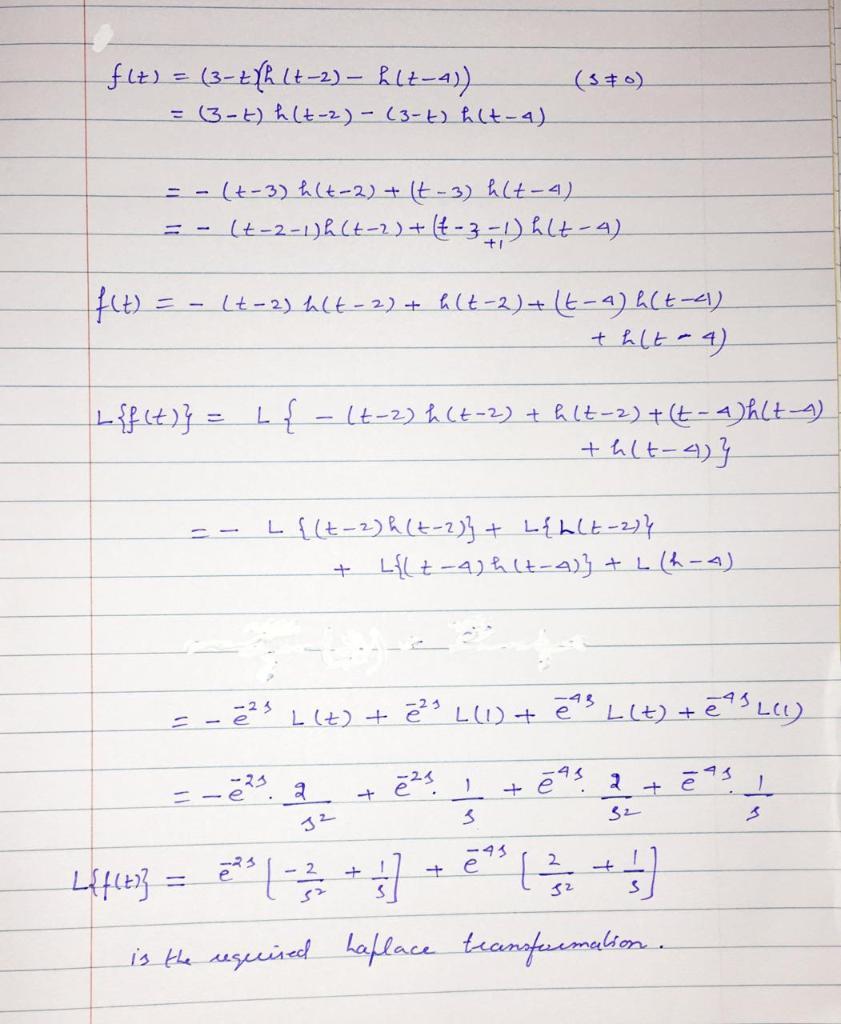 f(t) = (3-t)(h(t-2) - h(t-4)) (s≠0)
= (3-t) h(t-2) - (3-t) h(t-4)
= - (t-3) h(t-2) + (t-3) h(t-4)
= - (t-2-1)h(t-2) + (t-3-1+1) h(t-4)
f(t) = - (t-2) h(t-2) + h(t-2) + (t-4) h(t-4)
+ h(t-4)
L{f(t)} = L { - (t-2) h(t-2) + h(t-2) + (t-4)h(t-4)
+ h(t-4)}
= - L {(t-2)h(t-2)} + L{h(t-2)}
+ L{(t-4)h(t-4)} + L(h-4)
= - e^{-2s} L(t) + e^{-2s} L(1) + e^{-4s} L(t) + e^{-4s} L(1)
= - e^{-2s} . 2/s² + e^{-2s} . 1/s + e^{-4s} . 2/s² + e^{-4s} . 1/s
L{f(t)} = e^{-2s} [-2/s² + 1/s] + e^{-4s} [2/s² + 1/s]
is the required Laplace transformation.